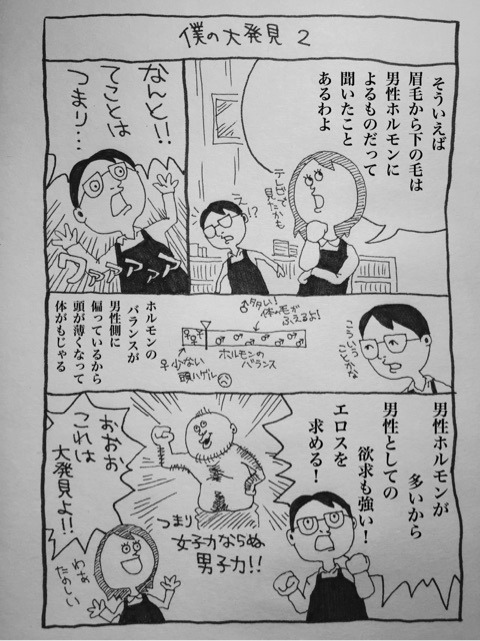 僕の大発見 2
そういえば
眉毛から下の毛は
男性ホルモンに
よるものだって
聞いたこと
あるわよ
テレビで
見たかも
え!?
なんと!!
てことは
つまり…
ワァァァァ
こういう
ことかな
♂多い!
体の毛が
ふえるよ!
ホルモンの
バランス
♀少ない
頭ハゲル
ホルモンの
バランスが
男性側に
偏っているから
頭が薄くなって
体がもじゃる
男性ホルモンが
多いから
男性としての
欲求も強い!
エロスを
求める!
つまり
女子力ならぬ
男子力!!
おおお
これは
大発見よ!!
わお
たのしい